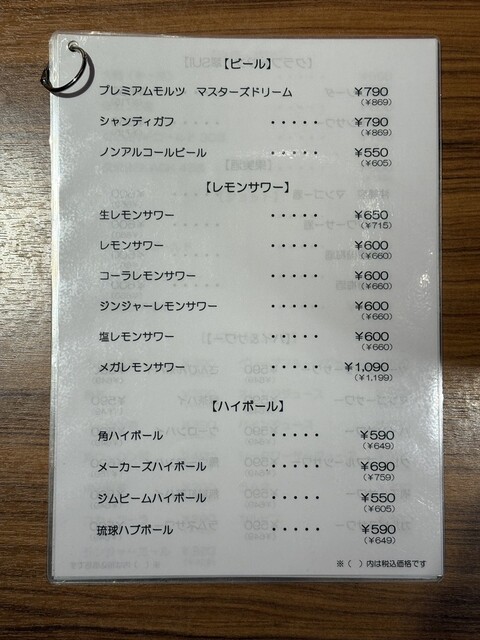 【ビール】
プレミアムモルツ　マスターズドリーム ¥790
(¥869)
シャンディガフ ・・・・・ ¥790
(¥869)
ノンアルコールビール ・・・・・ ¥550
(¥605)
【レモンサワー】
生レモンサワー ・・・・・ ¥650
(¥715)
レモンサワー ・・・・・ ¥600
(¥660)
コーラレモンサワー ・・・・・ ¥600
(¥660)
ジンジャーレモンサワー ・・・・・ ¥600
(¥660)
塩レモンサワー ・・・・・ ¥600
(¥660)
メガレモンサワー ・・・・・ ¥1,090
(¥1,199)
【ハイボール】
角ハイボール ・・・・・ ¥590
(¥649)
メーカーズハイボール ・・・・・ ¥690
(¥759)
ジムビームハイボール ・・・・・ ¥550
(¥605)
琉球ハブボール ・・・・・ ¥590
(¥649)
※（　）内は税込価格です